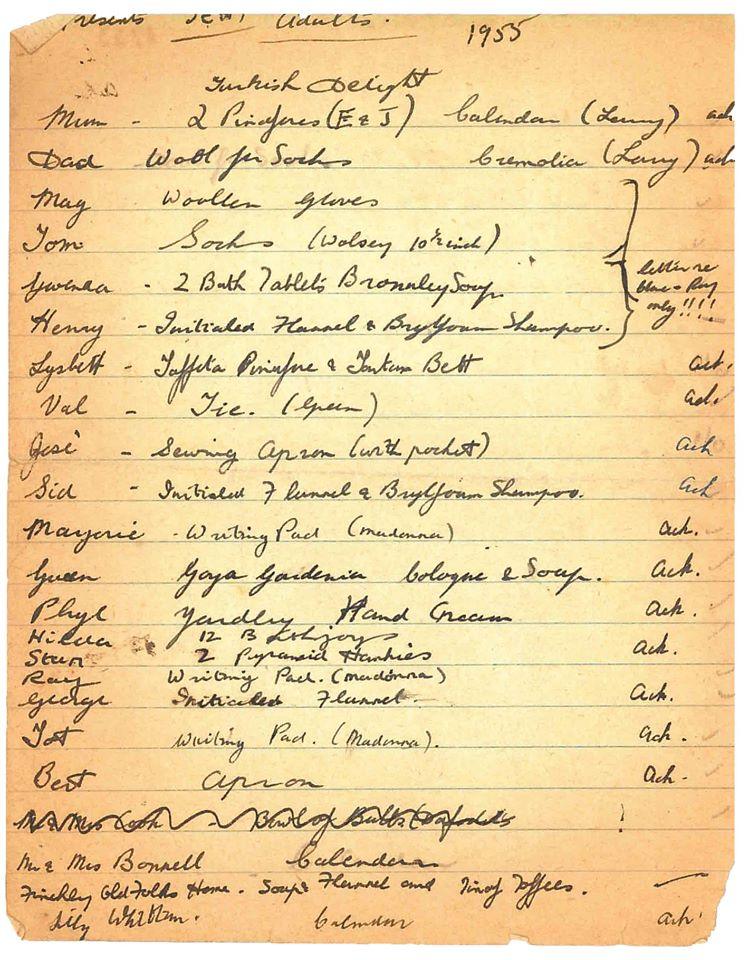 Presents Sent Adults. 1955
Turkish Delight
Mum - 2 Pinafores (E & J) Calendar (Lenny) ack
Dad Wool for Socks Cremolia (Lenny) ack
Mag Woollen Gloves
Tom Socks (Wolsey 10½ inch)
Gwenda - 2 Bath Tablets Bronnley Soap
Henry - Initialed Flannel & Brylfoam Shampoo.
letter re
only!!!!
Lysbett - Taffeta Pinafore & Tartan Belt ack.
Val - Tie. (Green) ack.
José - Sewing Apron (with pocket) ack
Sid - Initialed Flannel & Brylfoam Shampoo. ack
Marjorie - Writing Pad (Madonna) ack.
Gwen Goya Gardenia Cologne & Soap. ack.
Phyl Yardley Hand Cream ack.
Hilda 12 Bathjoys
Stan 2 Pyramid Hankies ack.
Ray Writing Pad. (Madonna)
George Initialed Flannel. ack.
Writing Pad. (Madonna). ack.
Best Apron ack.
Mr & Mrs Cook - Bowl of Bulbs (Daffodils !
Mr & Mrs Bonnell Calendar
Finchley Old Folks Home. Soap & Flannel and Tin of Toffees.
Calendar ack.